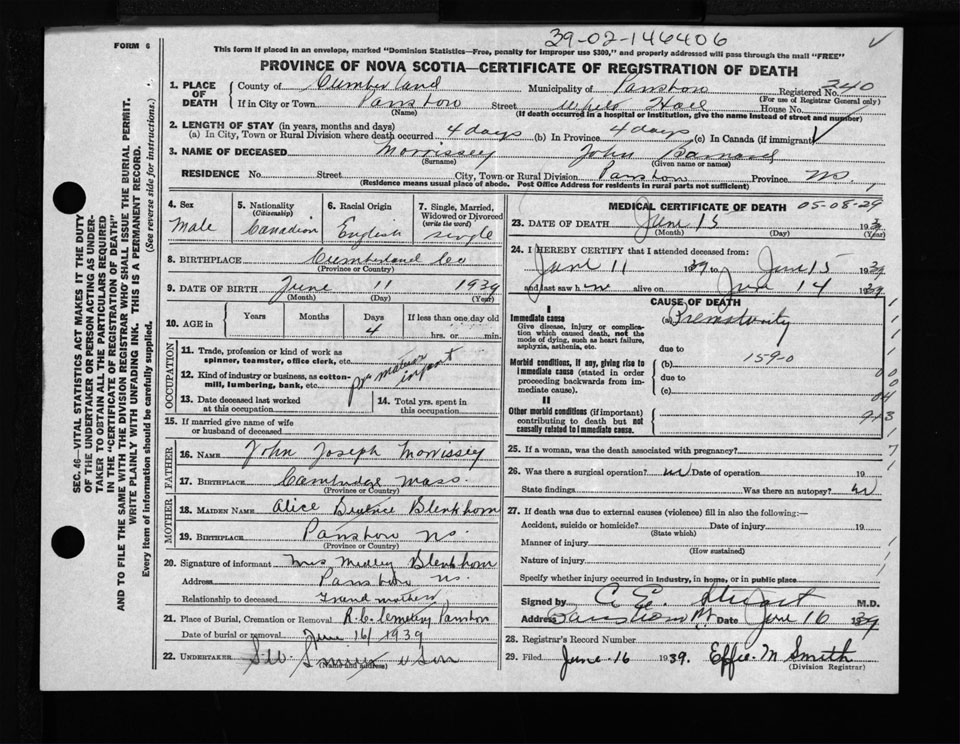 39-02-146406
FORM 6
This form if placed in an envelope, marked "Dominion Statistics—Free, penalty for improper use $300," and properly addressed will pass through the mail "FREE"
PROVINCE OF NOVA SCOTIA—CERTIFICATE OF REGISTRATION OF DEATH
1. PLACE OF DEATH
County of Cumberland Municipality of Parrsboro Registered No. 240
(For use of Registrar General only)
If in City or Town Parrsboro Street House No.
(Name) (If death occurred in a hospital or institution, give the name instead of street and number)
2. LENGTH OF STAY (in years, months and days)
(a) In City, Town or Rural Division where death occurred 4 days (b) In Province 4 days (c) In Canada (if immigrant)
3. NAME OF DECEASED Morrissey John Barnard
(Surname) (Given name or names)
RESIDENCE No. Street City, Town or Rural Division Parrsboro Province N.S.
(Residence means usual place of abode. Post Office Address for residents in rural parts not sufficient)
4. Sex Male
5. Nationality (Citizenship) Canadian
6. Racial Origin English
7. Single, Married, Widowed or Divorced (write the word) single
8. BIRTHPLACE Cumberland Co
(Province or Country)
9. DATE OF BIRTH June 11 1939
(Month) (Day) (Year)
10. AGE in Years Months Days 4 If less than one day old
hrs. or min.
OCCUPATION
11. Trade, profession or kind of work as spinner, teamster, office clerk, etc.
12. Kind of industry or business, as cotton-mill, lumbering, bank, etc.
infant
13. Date deceased last worked at this occupation
14. Total yrs. spent in this occupation
15. If married give name of wife or husband of deceased
FATHER
16. NAME John Joseph Morrissey
17. BIRTHPLACE Cambridge Mass.
(Province or Country)
MOTHER
18. MAIDEN NAME Alice Blenkhorn
19. BIRTHPLACE Parrsboro N.S.
(Province or Country)
20. Signature of informant Mrs Medley Blenkhorn
Address Parrsboro N.S.
Relationship to deceased Grandmother
21. Place of Burial, Cremation or Removal R.C. Cemetery Parrsboro
Date of burial or removal June 16/1939
22. UNDERTAKER & Son
(Name and address)
MEDICAL CERTIFICATE OF DEATH 05-08-29
23. DATE OF DEATH June 15 1939
(Month) (Day) (Year)
24. I HEREBY CERTIFY that I attended deceased from
June 11 1939 to June 15 1939
and last saw him alive on June 14 1939
CAUSE OF DEATH
I
Immediate cause
Give disease, injury or complication which caused death, not the mode of dying, such as heart failure, asphyxia, asthenia, etc.
(a) Prematurity
due to
Morbid conditions, if any, giving rise to immediate cause (stated in order proceeding backwards from immediate cause)
(b) 159-0
due to
(c)
II
Other morbid conditions (if important) contributing to death but not causally related to immediate cause.
25. If a woman, was the death associated with pregnancy?
26. Was there a surgical operation? no Date of operation 19
State findings Was there an autopsy? no
27. If death was due to external causes (violence) fill in also the following:—
Accident, suicide or homicide? Date of injury 19
(State which)
Manner of injury
(How sustained)
Nature of injury
Specify whether injury occurred in industry, in home, or in public place
Signed by M.D.
Address Parrsboro Date June 16 1939
28. Registrar's Record Number
29. Filed June 16 1939. Effie M Smith
(Division Registrar)
SEC. 46—VITAL STATISTICS ACT MAKES IT THE DUTY
OF THE UNDERTAKER OR PERSON ACTING AS UNDER-
TAKER TO OBTAIN ALL THE PARTICULARS REQUIRED
IN THE "CERTIFICATE OF REGISTRATION OF DEATH"
AND TO FILE THE SAME WITH THE DIVISION REGISTRAR WHO SHALL ISSUE THE BURIAL PERMIT.
WRITE PLAINLY WITH UNFADING INK. THIS IS A PERMANENT RECORD.
Every item of information should be carefully supplied. (See reverse side for instructions.)